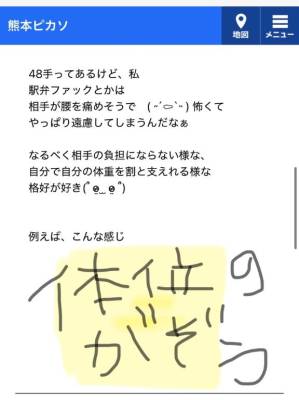 熊本ピカソ
地図
メニュー
48手ってあるけど、私
駅弁ファックとかは
相手が腰を痛めそうで ( ˶´⚰︎`˵ ) 怖くて
やっぱり遠慮してしまうんだなぁ
なるべく相手の負担にならない様な、
自分で自分の体重を割と支えれる様な
格好が好き(ﾟ∂‿∂ﾟ)
例えば、こんな感じ
体位の
がぞう